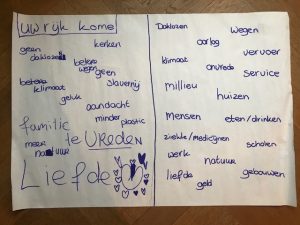 uw rijk kome
geen kerken
daklozen
betere wegen
geen
betere slavernij
klimaat
geluk aandacht
minder plastic
familie
te VREDEN
meer natuur
Liefde
Daklozen wegen
oorlog
vervoer
klimaat onvrede
service
millieu
huizen
mensen eten/drinken
ziekte/medicijnen scholen
werk natuur
liefde gebouwen
geld